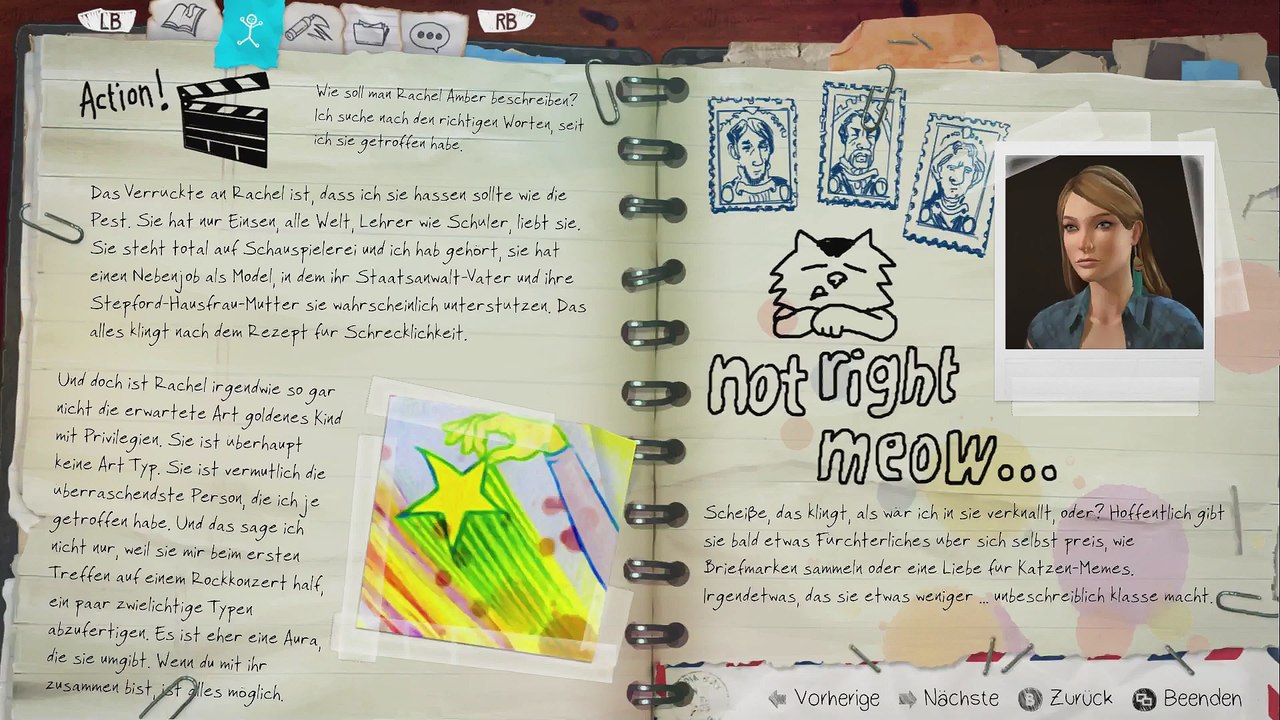 LB
RB
Action!
Wie soll man Rachel Amber beschreiben?
Ich suche nach den richtigen Worten, seit
ich sie getroffen habe.
Das Verruckte an Rachel ist, dass ich sie hassen sollte wie die
Pest. Sie hat nur Einsen, alle Welt, Lehrer wie Schuler, liebt sie.
Sie steht total auf Schauspielerei und ich hab gehört, sie hat
einen Nebenjob als Model, in dem ihr Staatsanwalt-Vater und ihre
Stepford-Hausfrau-Mutter sie wahrscheinlich unterstutzen. Das
alles klingt nach dem Rezept fur Schrecklichkeit.
Und doch ist Rachel irgendwie so gar
nicht die erwartete Art goldenes Kind
mit Privilegien. Sie ist uberhaupt
keine Art Typ. Sie ist vermutlich die
uberraschendste Person, die ich je
getroffen habe. Und das sage ich
nicht nur, weil sie mir beim ersten
Treffen auf einem Rockkonzert half,
ein paar zwielichtige Typen
abzufertigen. Es ist eher eine Aura,
die sie umgibt. Wenn du mit ihr
zusammen bist, ist alles möglich.
not right
meow...
Scheiße, das klingt, als wär ich in sie verknallt, oder? Hoffentlich gibt
sie bald etwas Furchterliches uber sich selbst preis, wie
Briefmarken sammeln oder eine Liebe fur Katzen-Memes.
Irgendetwas, das sie etwas weniger ... unbeschreiblich klasse macht.
Vorherige
Nächste
B Zurück
Beenden